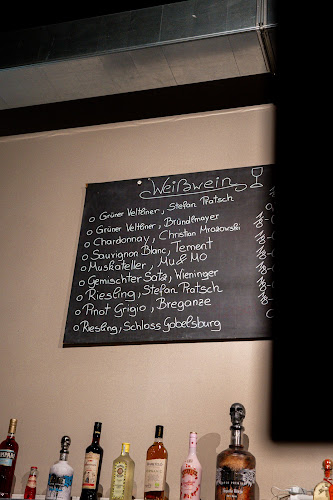 Weißwein
o Grüner Veltliner, Stefan Pratsch
o Grüner Veltliner, Bründlmayer
o Chardonnay, Christian Mrozowski
o Sauvignon Blanc, Tement
o Muskateller, Mu & Mo
o Gemischter Satz, Wieninger
o Riesling, Stefan Pratsch
o Pinot Grigio, Breganze
o Riesling, Schloss Gobelsburg